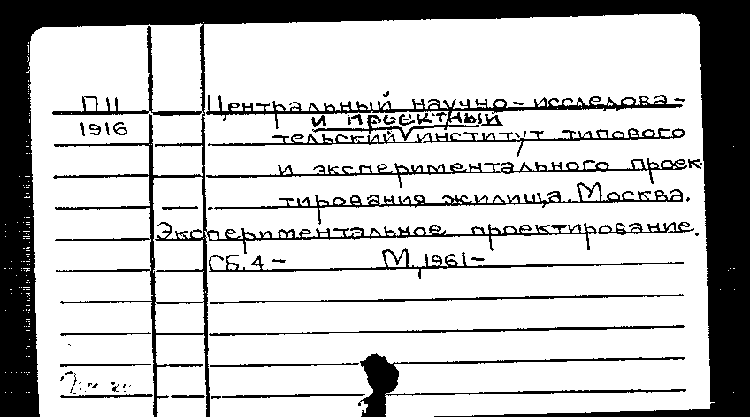 П11 Центральный научно-исследова-
и проектный
1916 тельский институт типового
и экспериментального проек
тирования жилища. Москва.
Экспериментальное проектирование.
Сб. 4- М, 1961-